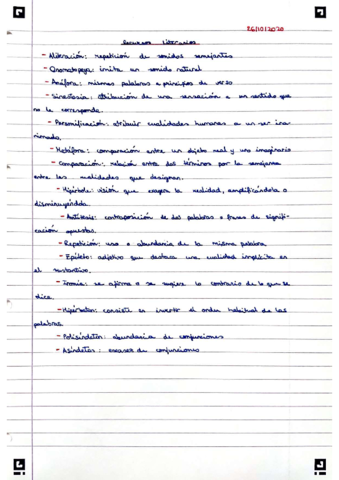 26/10/2020
Recursos Literarios
- Aliteración: repetición de sonidos semejantes
- Onomatopeya: imita un sonido natural
- Anáfora: mismas palabras a principio de verso
- Sinestesia: atribución de una sensación a un sentido que
no le corresponde.
- Personificación: atribuir cualidades humanas a un ser ina-
nimado.
- Metáfora: comparación entre un objeto real y uno imaginario
- Comparación: relación entre dos términos por la semejanza
entre las realidades que designan.
- Hipérbole: visión que exagera la realidad, amplificándola o
disminuyéndola.
- Antítesis: contraposición de dos palabras o frases de signifi-
cación opuestas.
- Repetición: uso o abundancia de la misma palabra
- Epíteto: adjetivo que destaca una cualidad implícita en
el sustantivo.
- Ironía: se afirma o se sugiere lo contrario de lo que se
dice.
- Hipérbaton: consiste en invertir el orden habitual de las
palabras.
- Polisíndeton: abundancia de conjunciones
- Asíndeton: escasez de conjunciones